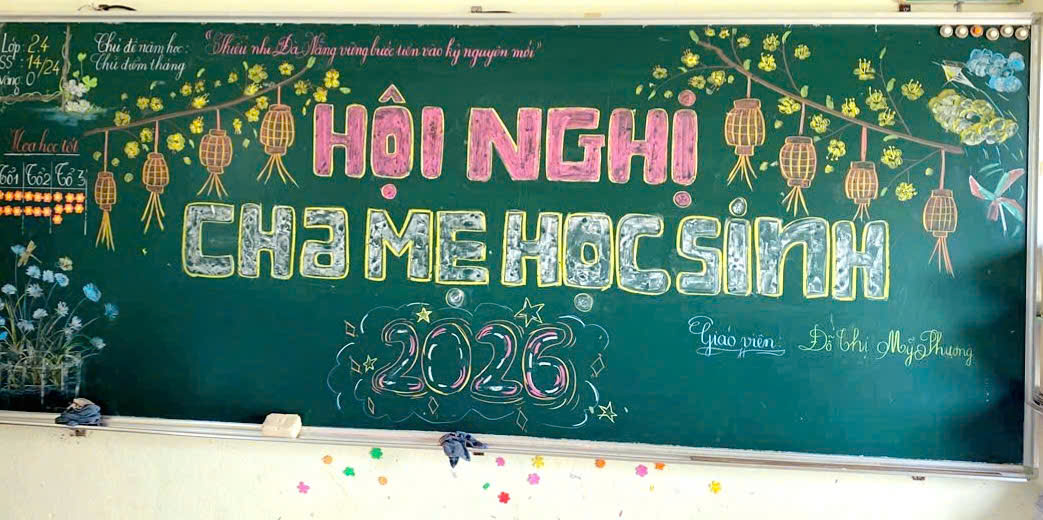 Lớp: 2.4
SS: 14/24
Vắng: 0
Chủ đề năm học: "Thiếu nhi Đà Nẵng vững bước tiến vào kỷ nguyên mới"
Chủ điểm tháng
Hoa học tốt
Tổ 1 Tổ 2 Tổ 3
HỘI NGHỊ
CHa MẸ HỌC SINH
2026
Giáo viên: Đỗ Thị Mỹ Phương